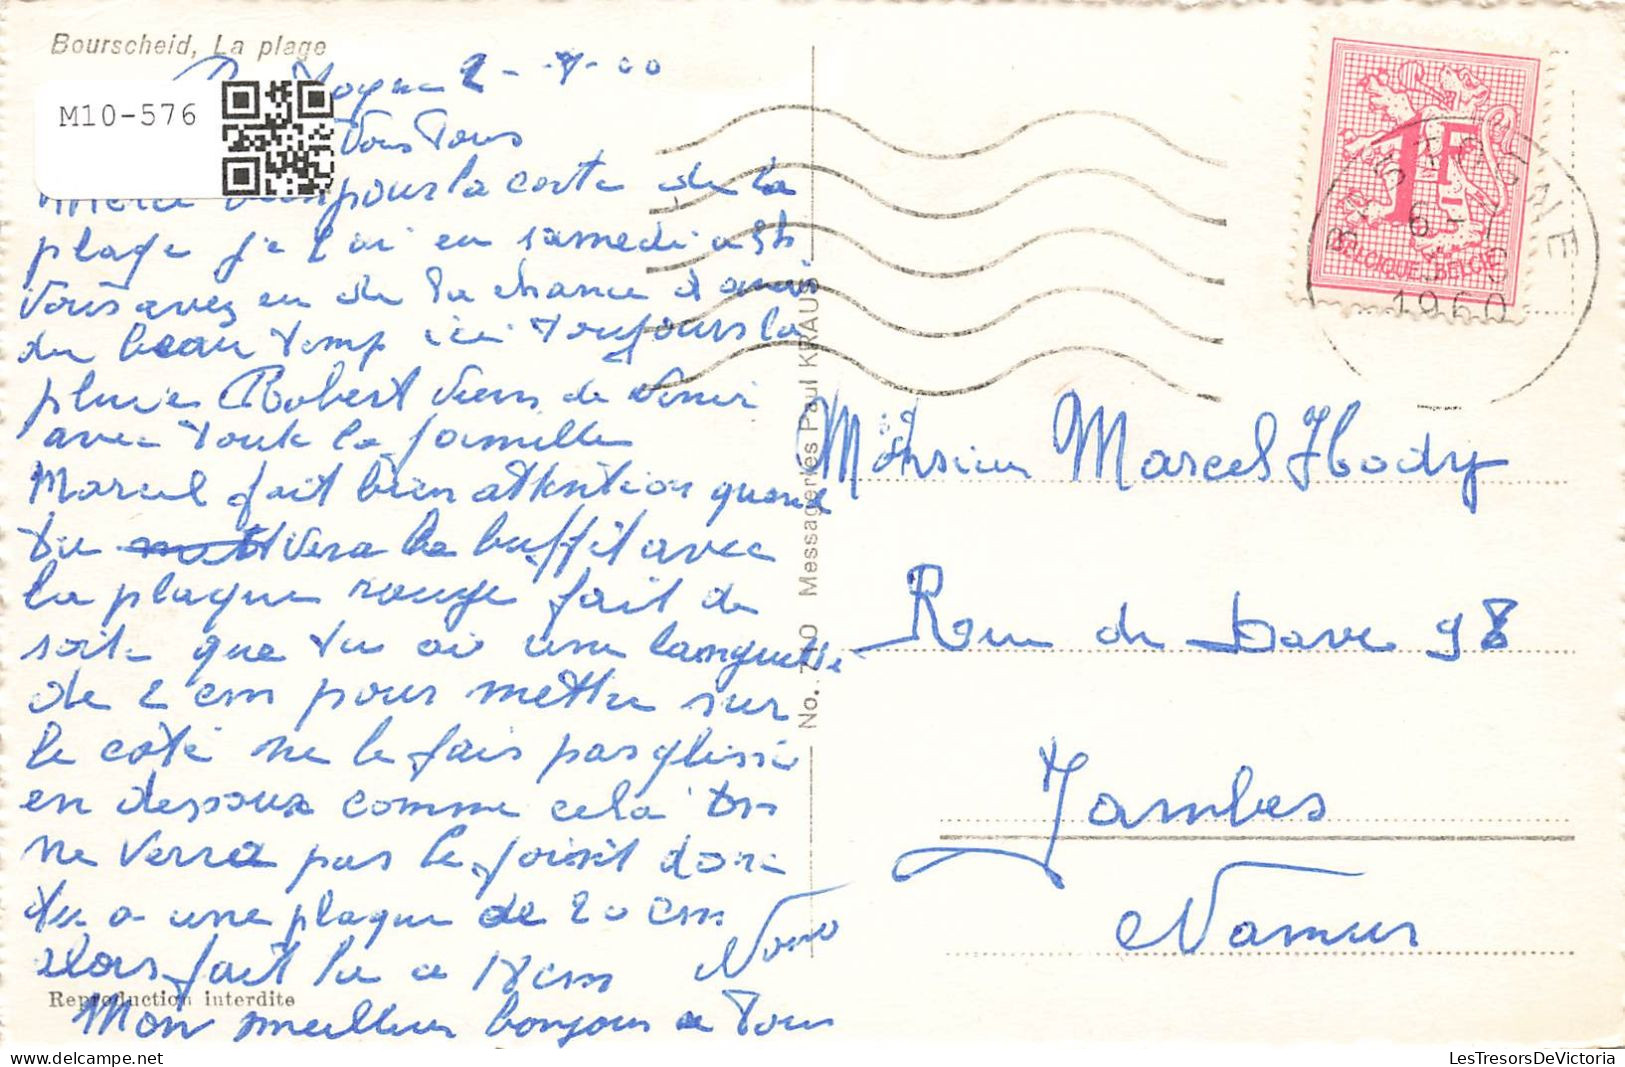 Bourscheid, La plage
M10-576
Vous Tous
merci bien pour la carte de la
plage je l'ai eu samedi a 5h
Vous avez eu de la chance d'avoir
du beau temp ici toujours la
pluie Robert viens de venir
avec toute la famille
Marcel fait bien attention quand
tu vera la buffit avec
la plaque rouge fait de
sorte que tu ai une languette
de 2 cm pour mettre sur
le coté ne le fais pas glissé
en dessoux comme cela on
ne verra pas le joint donc
tu a une plaque de 20 cm
alors fait la a 18 cm
Nono
Mon meilleur bonjour a Tous
Reproduction interdite
No. 710 Messageries Paul KRAUS
1F
BELGIQUE-BELGIE
BASTOGNE
1960
Monsieur Marcel Hody
Rue de Dave 98
Jambes
Namur
LesTresorsDeVictoria